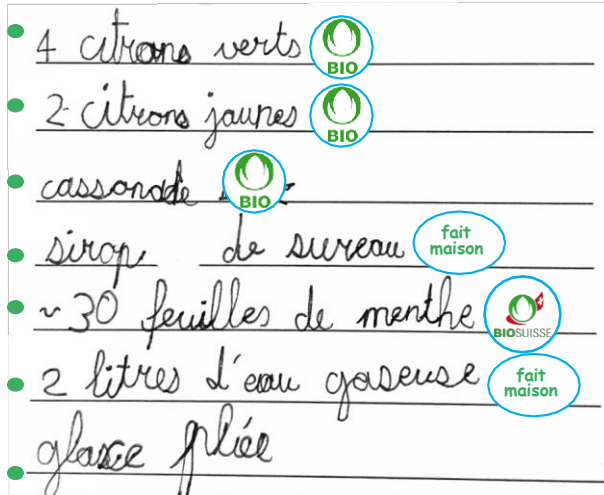 4 citrons verts BIO
2 citrons jaunes BIO
cassonade BIO
sirop de sureau fait maison
~30 feuilles de menthe BIOSUISSE
2 litres d'eau gaseuse fait maison
glace pliée